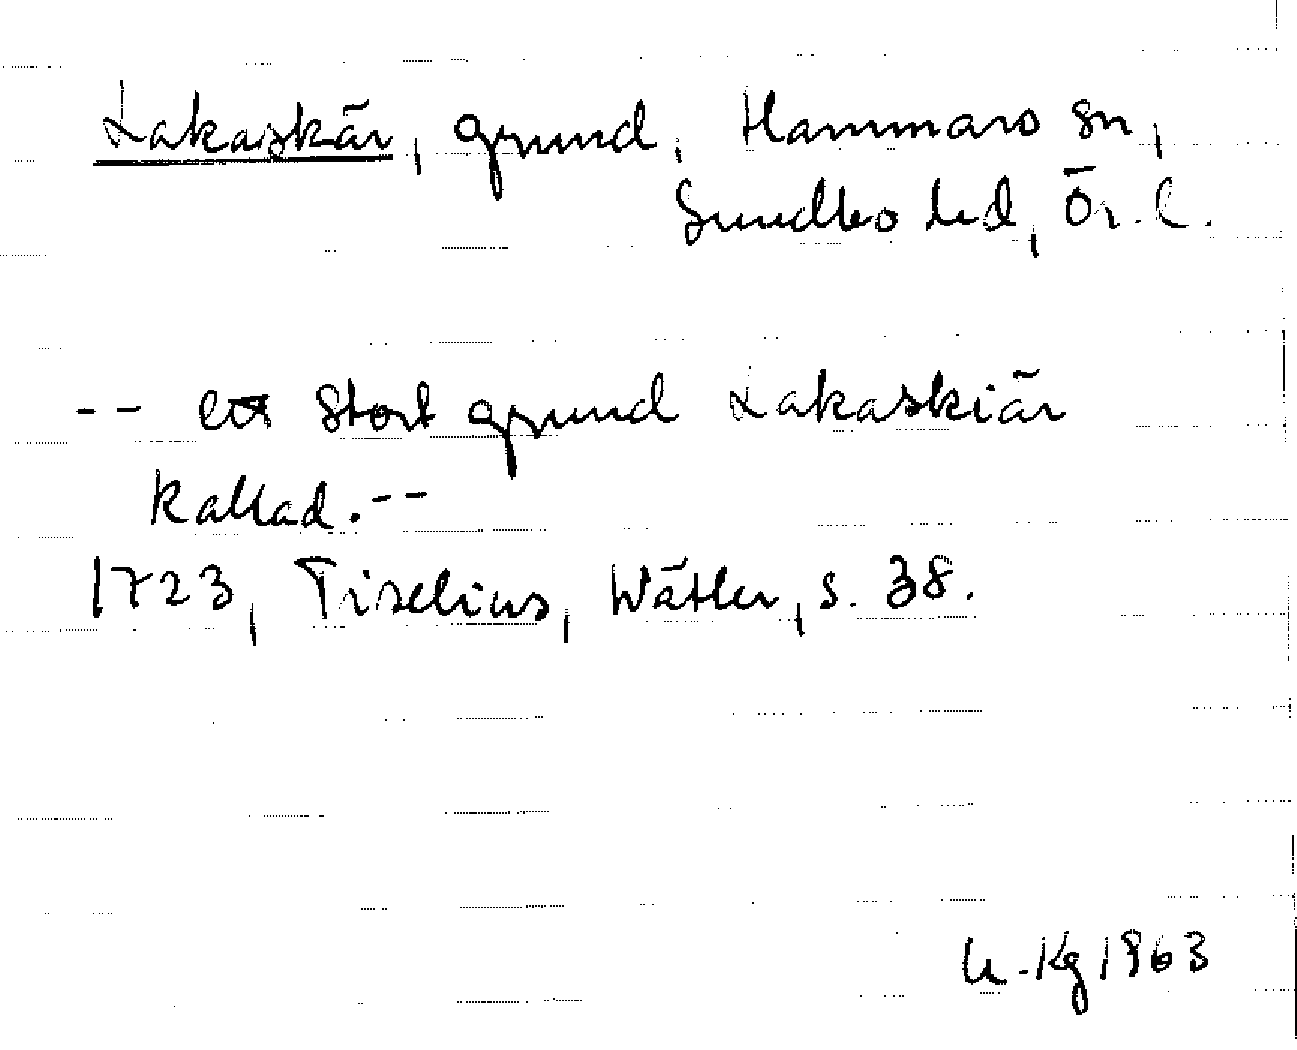 Lakaskär, grund, Hammaro sn,
Sundbo hd, Ör. l.
-- ett stort grund Lakaskiär
kallad. --
1723, Tiselius, Wätter, s. 38.
U. Kg 1963